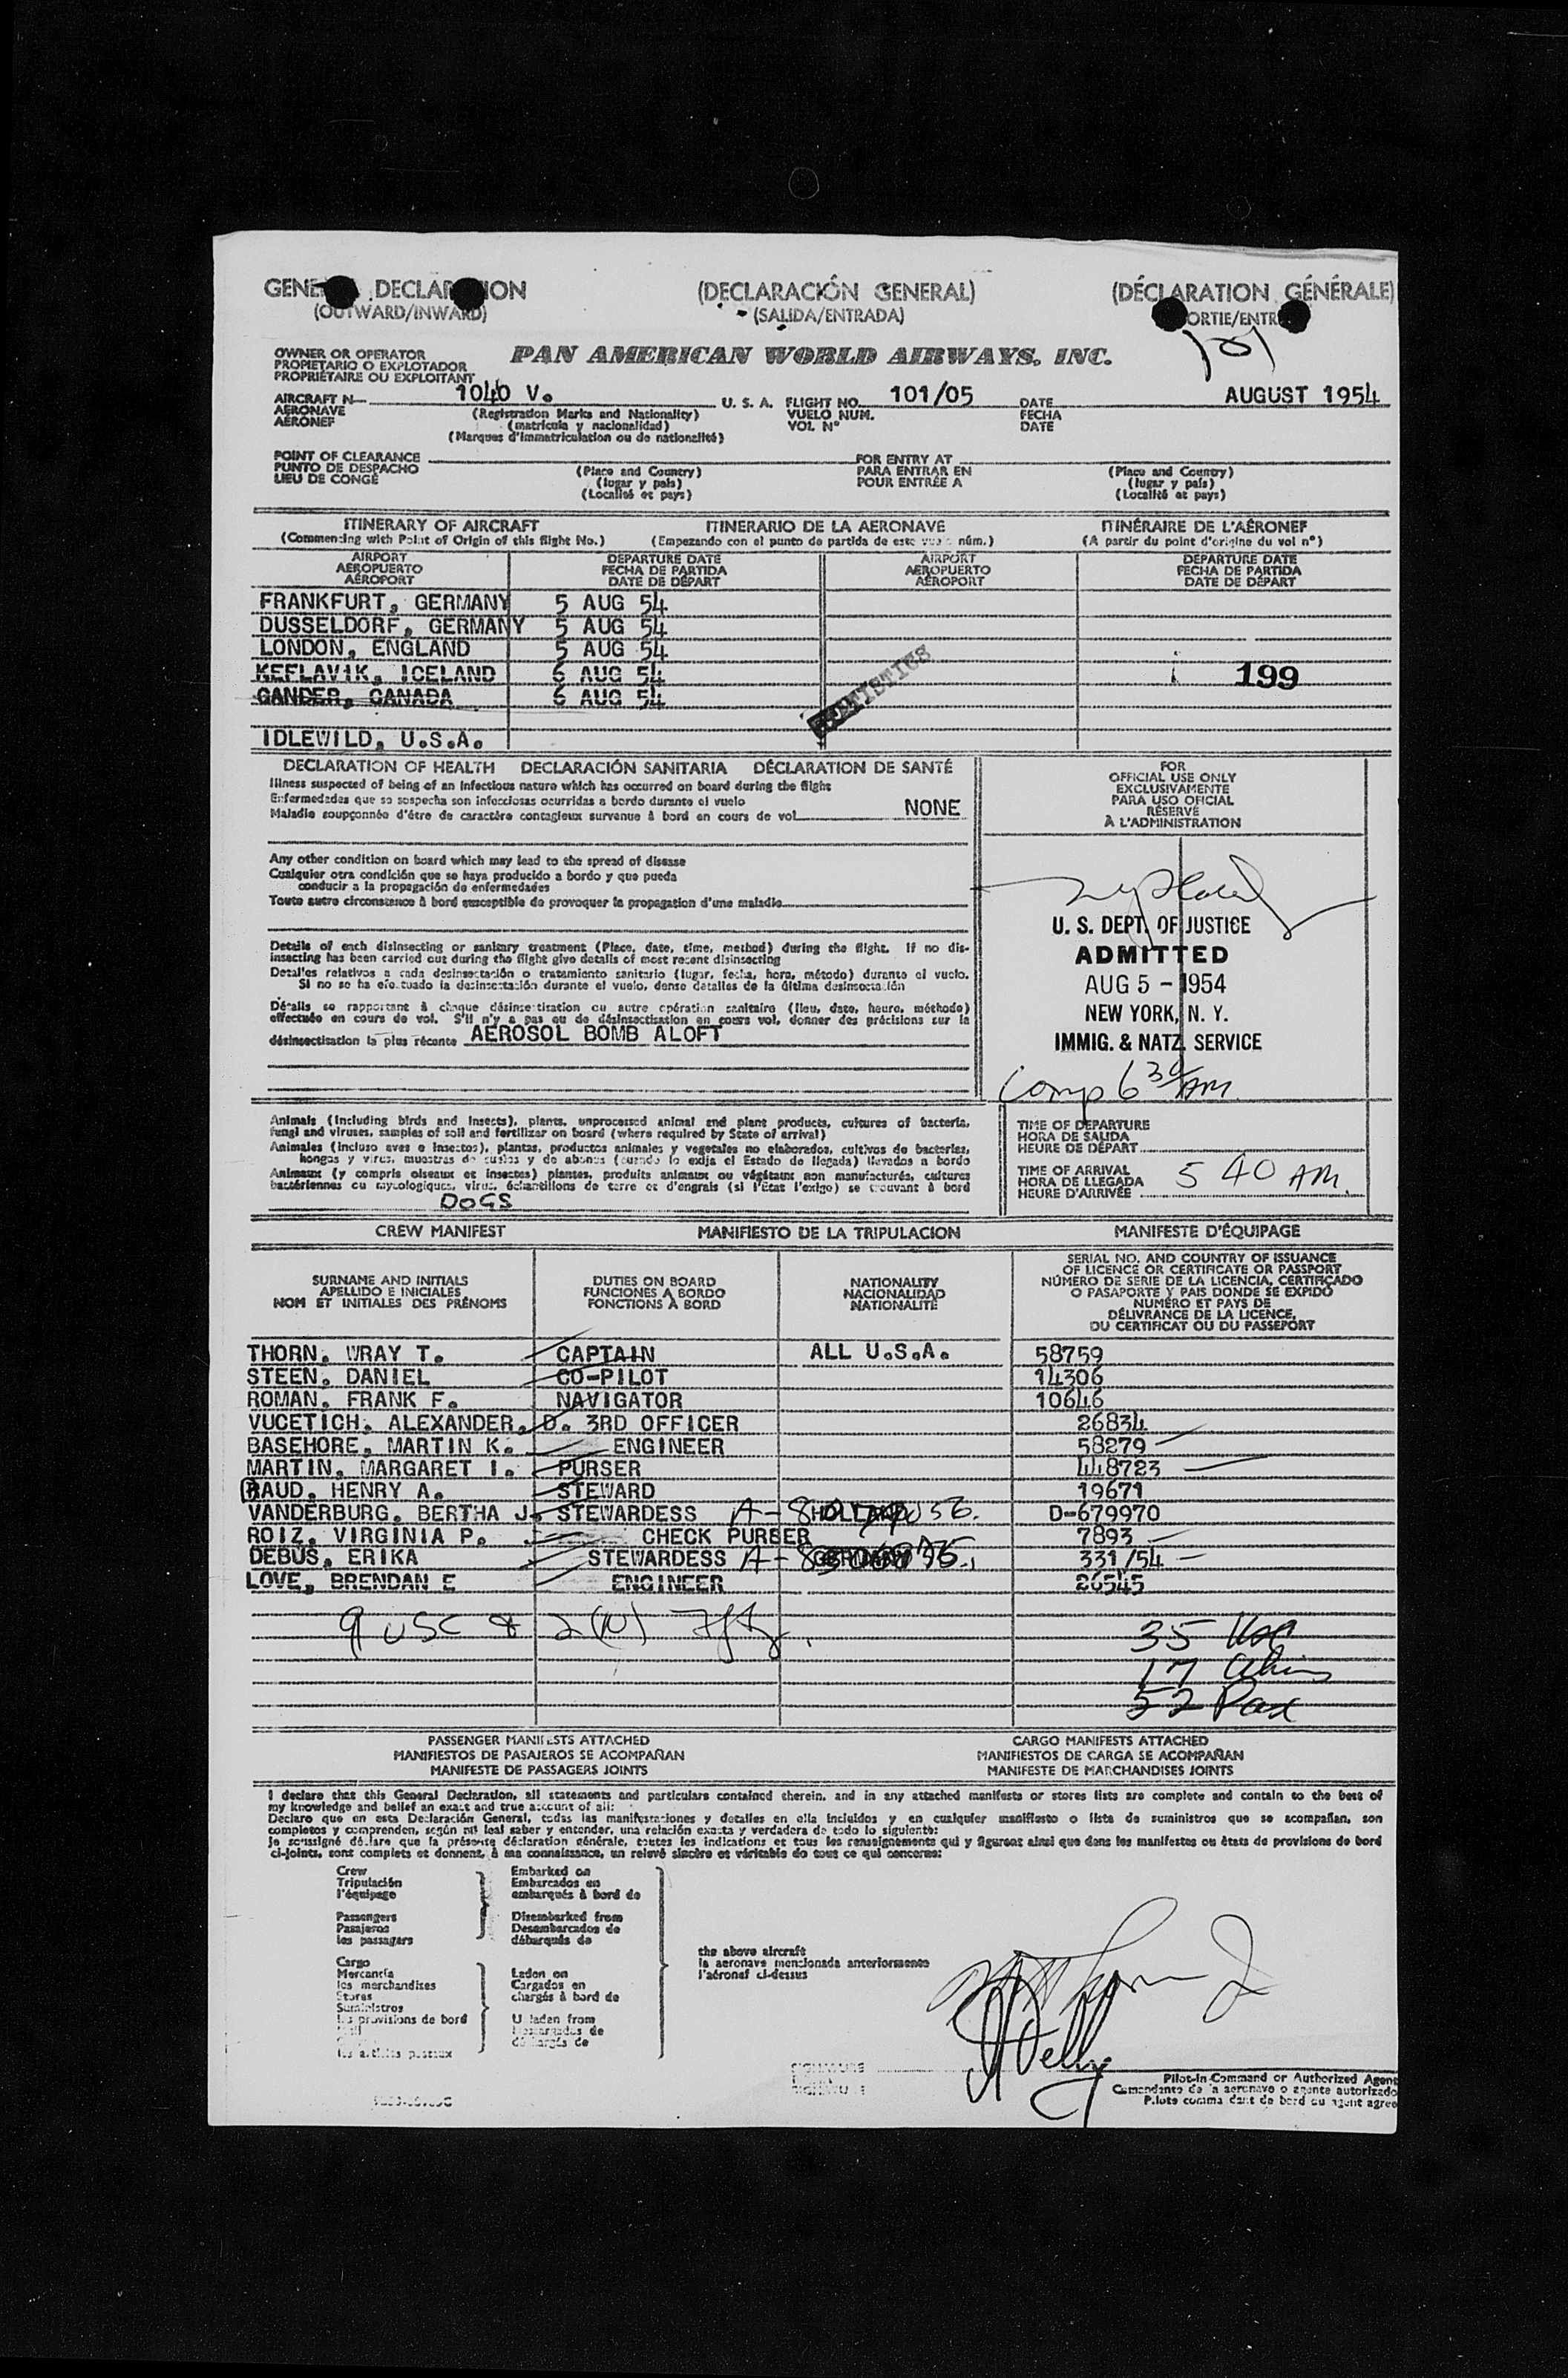 GENE DECLAR ION (DECLARACIÓN GENERAL) (DÉCLARATION GÉNÉRALE)
(OUTWARD/INWARD) (SALIDA/ENTRADA) ORTIE/ENTR
101
OWNER OR OPERATOR
PROPIETARIO O EXPLOTADOR
PROPRIÉTAIRE OU EXPLOITANT
PAN AMERICAN WORLD AIRWAYS, INC.
AIRCRAFT N— 1040 V. U. S. A. FLIGHT NO. 101/05 DATE AUGUST 1954
AERONAVE (Registration Marks and Nationality) VUELO NUM. FECHA
AÉRONEF (matricula y nacionalidad) VOL N° DATE
(Marques d'immatriculation ou de nationalité)
POINT OF CLEARANCE FOR ENTRY AT
PUNTO DE DESPACHO (Place and Country) PARA ENTRAR EN (Place and Country)
LIEU DE CONGÉ (lugar y pais) POUR ENTRÉE A (lugar y pais)
(Localité et pays) (Localité et pays)
ITINERARY OF AIRCRAFT ITINERARIO DE LA AERONAVE ITINÉRAIRE DE L'AÉRONEF
(Commencing with Point of Origin of this flight No.) (Empezando con el punto de partida de este vuelo núm.) (A partir du point d'origine du vol n°)
AIRPORT DEPARTURE DATE AIRPORT DEPARTURE DATE
AEROPUERTO FECHA DE PARTIDA AEROPUERTO FECHA DE PARTIDA
AÉROPORT DATE DE DÉPART AÉROPORT DATE DE DÉPART
FRANKFURT, GERMANY 5 AUG 54
DUSSELDORF, GERMANY 5 AUG 54
LONDON, ENGLAND 5 AUG 54
KEFLAVIK, ICELAND 6 AUG 54 199
GANDER, CANADA 6 AUG 54
IDLEWILD, U.S.A.
DECLARATION OF HEALTH DECLARACIÓN SANITARIA DÉCLARATION DE SANTÉ
Illness suspected of being of an infectious nature which has occurred on board during the flight
Enfermedades que se sospecha son infecciosas ocurridas a bordo durante el vuelo
Maladie soupçonnée d'être de caractère contagieux survenue à bord en cours de vol NONE
Any other condition on board which may lead to the spread of disease
Cualquier otra condición que se haya producido a bordo y que pueda
conducir a la propagación de enfermedades
Toute autre circonstance à bord susceptible de provoquer la propagation d'une maladie
Details of each disinsecting or sanitary treatment (Place, date, time, method) during the flight. If no dis-
insecting has been carried out during the flight give details of most recent disinsecting
Detalles relativos a cada desinsectación o tratamiento sanitario (lugar, fecha, hora, método) durante el vuelo.
Si no se ha efectuado la desinsectación durante el vuelo, dense detalles de la última desinsectación
Détails se rapportant à chaque désinsectisation ou autre opération sanitaire (lieu, date, heure, méthode)
effectuée en cours de vol. S'il n'y a pas eu de désinsectisation en cours vol, donner des précisions sur la
désinsectisation la plus récente AEROSOL BOMB ALOFT
FOR
OFFICIAL USE ONLY
EXCLUSIVAMENTE
PARA USO OFICIAL
RÉSERVÉ
À L'ADMINISTRATION
U. S. DEPT. OF JUSTICE
ADMITTED
AUG 5 - 1954
NEW YORK, N. Y.
IMMIG. & NATZ. SERVICE
Comp 6 30 AM
Animals (including birds and insects), plants, unprocessed animal and plant products, cultures of bacteria,
fungi and viruses, samples of soil and fertilizer on board (where required by State of arrival)
Animales (incluso aves e insectos), plantas, productos animales y vegetales no elaborados, cultivos de bacterias,
hongos y virus, muestras de suelos y de abonos (cuando lo exija el Estado de llegada) llevados a bordo
Animaux (y compris oiseaux et insectes) plantes, produits animaux ou végétaux non manufacturés, cultures
bactériennes ou mycologiques, virus, échantillons de terre et d'engrais (si l'État l'exige) se trouvant à bord
DOGS
TIME OF DEPARTURE
HORA DE SALIDA
HEURE DE DÉPART
TIME OF ARRIVAL
HORA DE LLEGADA 5 40 AM.
HEURE D'ARRIVÉE
CREW MANIFEST MANIFIESTO DE LA TRIPULACION MANIFESTE D'ÉQUIPAGE
SURNAME AND INITIALS
APELLIDO E INICIALES
NOM ET INITIALES DES PRÉNOMS
DUTIES ON BOARD
FUNCIONES A BORDO
FONCTIONS À BORD
NATIONALITY
NACIONALIDAD
NATIONALITÉ
SERIAL NO. AND COUNTRY OF ISSUANCE
OF LICENCE OR CERTIFICATE OR PASSPORT
NÚMERO DE SERIE DE LA LICENCIA, CERTIFICADO
O PASAPORTE Y PAIS DONDE SE EXPIDÓ
NUMÉRO ET PAYS DE
DÉLIVRANCE DE LA LICENCE,
DU CERTIFICAT OU DU PASSEPORT
THORN, WRAY T. CAPTAIN ALL U.S.A. 58759
STEEN, DANIEL CO-PILOT 14306
ROMAN, FRANK F. NAVIGATOR 10646
VUCETICH, ALEXANDER, D. 3RD OFFICER 26834
BASEHORE, MARTIN K. ENGINEER 58279
MARTIN, MARGARET I. PURSER 448723
RAUD, HENRY A. STEWARD 19671
VANDERBURG, BERTHA J. STEWARDESS HOLLAND D-679970
ROIZ, VIRGINIA P. CHECK PURSER 7893
DEBUS, ERIKA STEWARDESS 331/54
LOVE, BRENDAN E ENGINEER 26545
9 USC & 2(N)
35 USA
17
52 Pax
PASSENGER MANIFESTS ATTACHED CARGO MANIFESTS ATTACHED
MANIFIESTOS DE PASAJEROS SE ACOMPAÑAN MANIFIESTOS DE CARGA SE ACOMPAÑAN
MANIFESTE DE PASSAGERS JOINTS MANIFESTE DE MARCHANDISES JOINTS
I declare that this General Declaration, all statements and particulars contained therein, and in any attached manifests or stores lists are complete and contain to the best of
my knowledge and belief an exact and true account of all:
Declaro que en esta Declaración General, todas las manifestaciones y detalles en ella incluidos y en cualquier manifiesto o lista de suministros que se acompañan, son
completos y comprenden, según mi leal saber y entender, una relación exacta y verdadera de todo lo siguiente:
Je soussigné déclare que la présente déclaration générale, toutes les indications et tous les renseignements qui y figurent ainsi que dans les manifestes ou états de provisions de bord
ci-joints, sont complets et donnent, à ma connaissance, un relevé sincère et véritable de tous ce qui concerne:
Crew Embarked on
Tripulación Embarcados en
l'équipage embarqués à bord de
Passengers Disembarked from
Pasajeros Desembarcados de
les passagers débarqués de
the above aircraft
la aeronave mencionada anteriormente
l'aéronef ci-dessus
Cargo
Mercancía Laden on
les merchandises Cargados en
Stores chargés à bord de
Suministros
les provisions de bord Unladen from
Descargados de
les articles postaux déchargés de
SIGNATURE
Pilot-in-Command or Authorized Agent
Comandante de la aeronave o agente autorizado
Pilote commandant de bord ou agent agréé